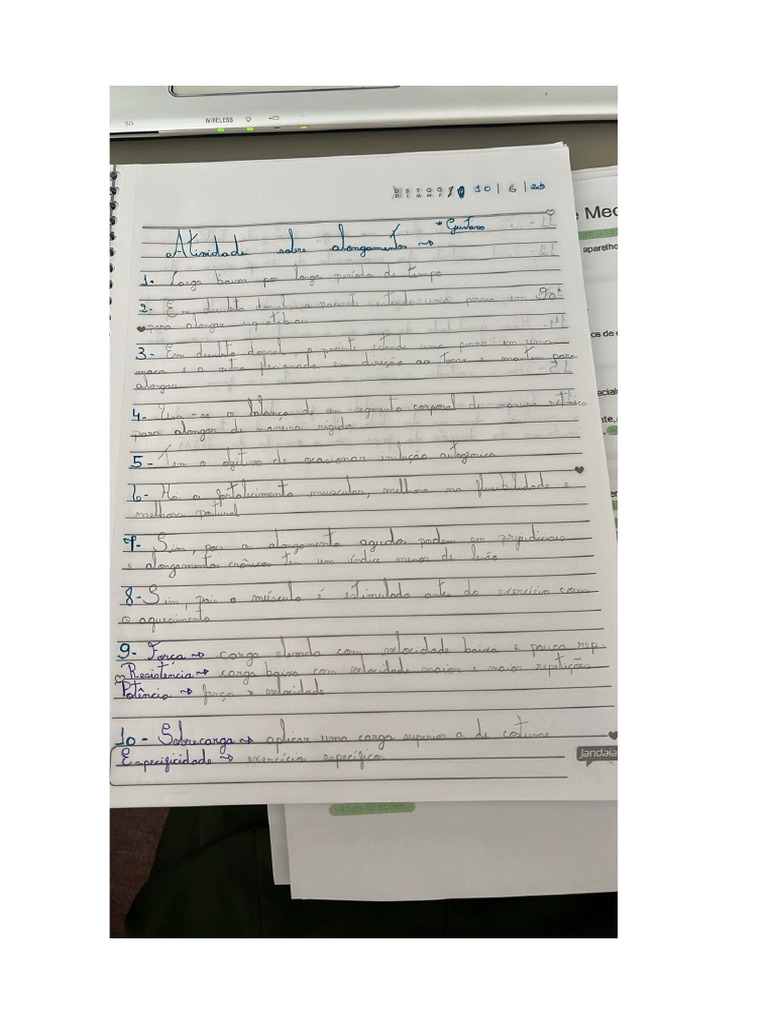 WIRELESS
10 | 6 | 25
* Gustavo
Atividade sobre alongamento
e Mec
aparelho
1- Carga baixa por longo período de tempo
2- Em decúbito dorsal o paciente uma perna em 90°
para alongar isquiotibiais
3- Em decúbito dorsal, o paciente estende uma perna em uma
maca e a outra flexionada em direção ao torax e mantem para
alongar
os de
4- Usa-se o balanço de um segmento corporal de maneira
para alongar de maneira rígida
5- Tem o objetivo de ocasionar inibição autogênica
6- Há o fortalecimento muscular, melhora na flexibilidade e
melhora postural
7- Sim, pois o alongamento agudo podem ser prejudiciais
e alongamentos crônicos tem um índice menor de lesão
8- Sim, pois o músculo é estimulado antes do exercício com
o aquecimento
9- Força → carga elevada com velocidade baixa e pouca rep.
Resistencia → carga baixa com velocidade maior e maior repetições
Potência → força x velocidade
10- Sobrecarga → aplicar uma carga superior a de costume
Especificidade → exercícios específicos
Jandaia
várias direções